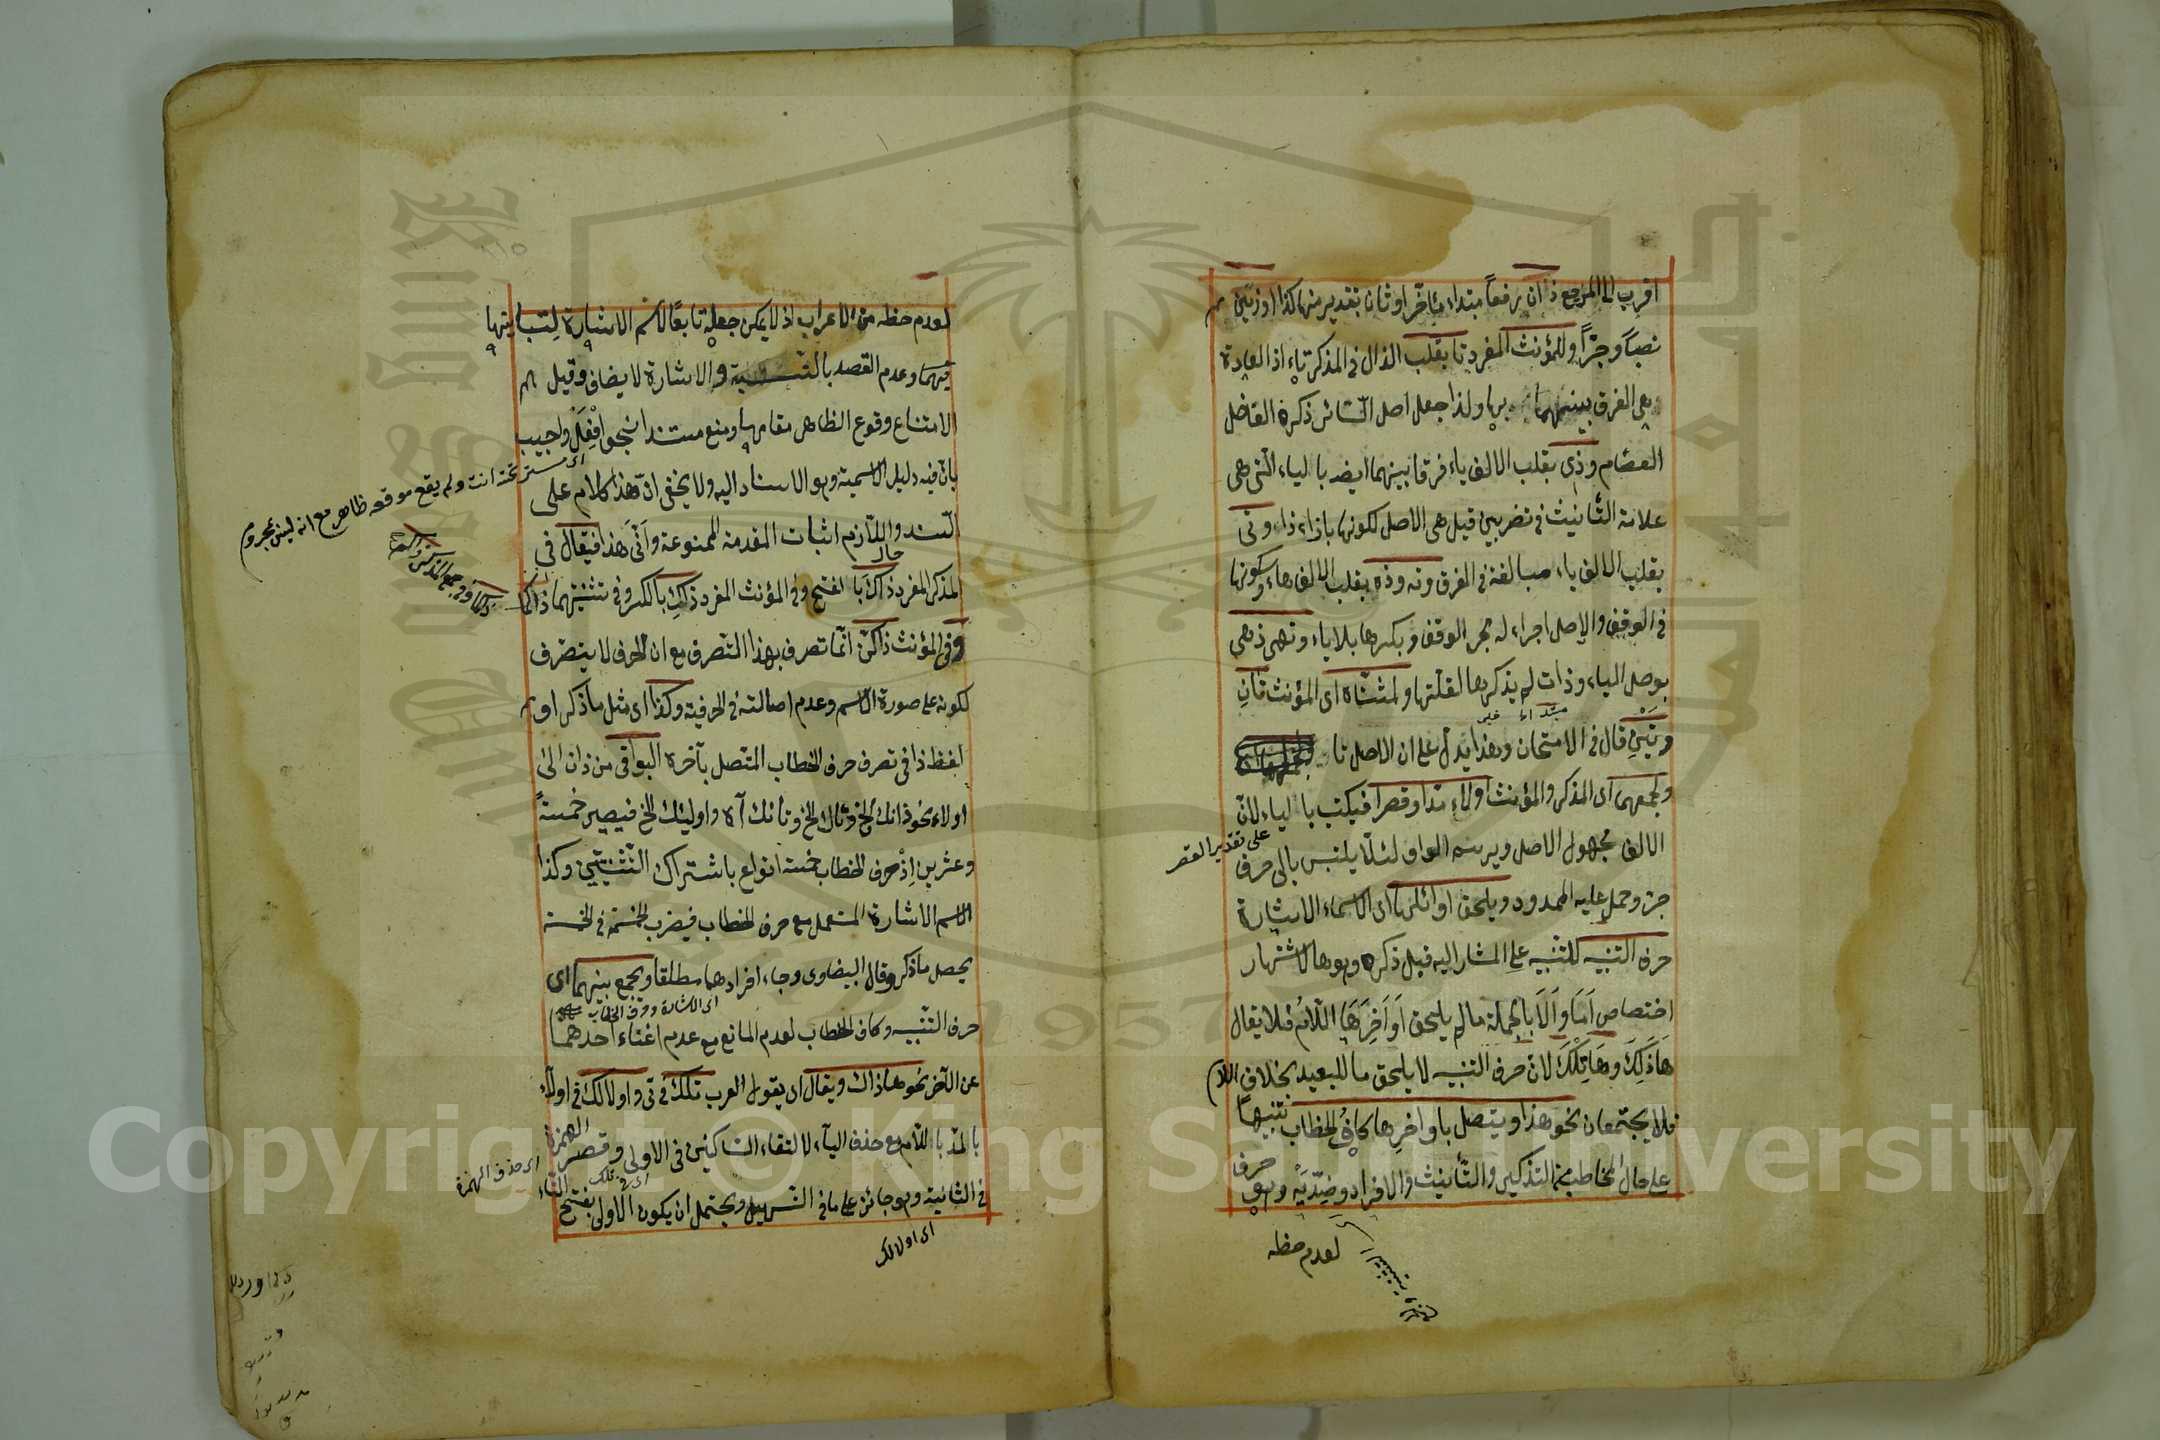 اقرب الى المرجع ذان رفعاً مبتداء مؤخر اوثان بتقدير منها كذا او ذين
نصباً وجرّاً وللمؤنث المفرد تا بقلب الذال فى المذكر تاء اذ العادة
هى الفرق بينهما بها ولذا جعل اصل التاس ذكره الفاضل
العصام وذى بقلب الالف ياء فرقا بينهما ايضه بالياء التى هى
علامة التأنيث فى تضربين قيل هى الاصل لكونها بازاء ذاء وتى
بقلب الالف ياء مبالغة فى الفرق وته وذه بقلب الالف هاء وسكونها
فى الوقف والاصل اجراء له مجر الوقف وبكسرها بلا ياء وتهى ذهى
بوصل الياء وذات لم يذكرها لقلتها ولمثناه اى المؤنث تان
مبتداء خبر
وتين قال فى الامتحان وهذا يدل على ان الاصل تا
ولجمعهما اى المذكر والمؤنث اولاء مدا وقصرا فيكتب بالياء لان
الالف مجهول الاصل ويرسم الواو لئلا يلتبس بالى حرف
على تقدير القصر
جر وحمل عليه الممدود ويلحق اوائلها اى الاسماء الاشارة
حرف التنبيه للتنبيه على المشار اليه قبل ذكره وهو ها لاشتهار
اختصاص اَمَا و اَلَا بالجملة مالم يلحق اَوَاخِرَهَا اللّامُ فلا يقال
هَاذَلِكَ وهَاتِلْكَ لان حرف التنبيه لا يلحق ما للبعيد بخلاف اللام
فلا يجتمعان نحو هذا ويتصل باواخرها كاف الخطاب تنبيهاً
على حال المخاطب من التذكير والتأنيث والافراد وضدّيه وهو حرف
لعدم حظه
لعدم حظه من الاعراب اذ لا يمكن جعله تابعًا لاسم الاشارة لتباينها
فيهما وعدم القصد بالتسوية والاشارة لا يضاف وقيل
الامتناع وقوع الظاهر مقامها ومنع مستندا بنحو افعل واجيب
اى مستتر تحته انت ولم يقع موقعه ظاهر مع انه ليس بمجروم
بان فيه دليل الاسمية وهو الاسناد اليه ولا يخفى انّ هذا كلام على
السند واللازم اثبات المقدمة الممنوعة وأنّى هذا فيقال فى
حال
المذكر المفرد ذاك بالفتح وفى المؤنث المفرد ذكِ بالكسر وفى تثنيتهما ذاكما
وفى المؤنث ذاكنّ انّما تصرف بهذا التصرف مع ان الحرف لا يتصرف
لكونه على صورة الاسم وعدم اصالته فى الحرفية وكذا اى مثل ما ذكر اوبم
لفظ ذا فى تصرف حرف الخطاب المتصل بآخره البواقى من ذان الى
اولاء نحو ذانك الخ وتاك الخ وتانك آه واوليئك الخ فيصير خمسةً
وعشرين اذ حرف الخطاب خمسة انواع باشتراك التثنيتين وكذا
الاسم الاشارة المستعمل مع حرف الخطاب فيضرب الخمسة فى الخمسة
يحصل ما ذكر وقال البيضاوى وجاء افرادهما مطلقا ويجمع بينهما اى
اى الاشارة وحرف الخطاب
حرف التنبيه وكاف الخطاب لعدم المانع مع عدم اغناء احدهما
عن الآخر نحو هاذاك ويقال اى يقول العرب تلك فى تى واولالك فى اولاء
بالمدّ باللام مع حذف الياء لالتقاء الساكنين فى الاولى وقصر الهمزة
اى حذف الهمزة
اى فى تلك
فى الثانية وهو جائز على ما فى التسهيل ويحتمل ان يكون الاولى بفتح التاء
اى اولالك
Copyright © King Saud University
1957